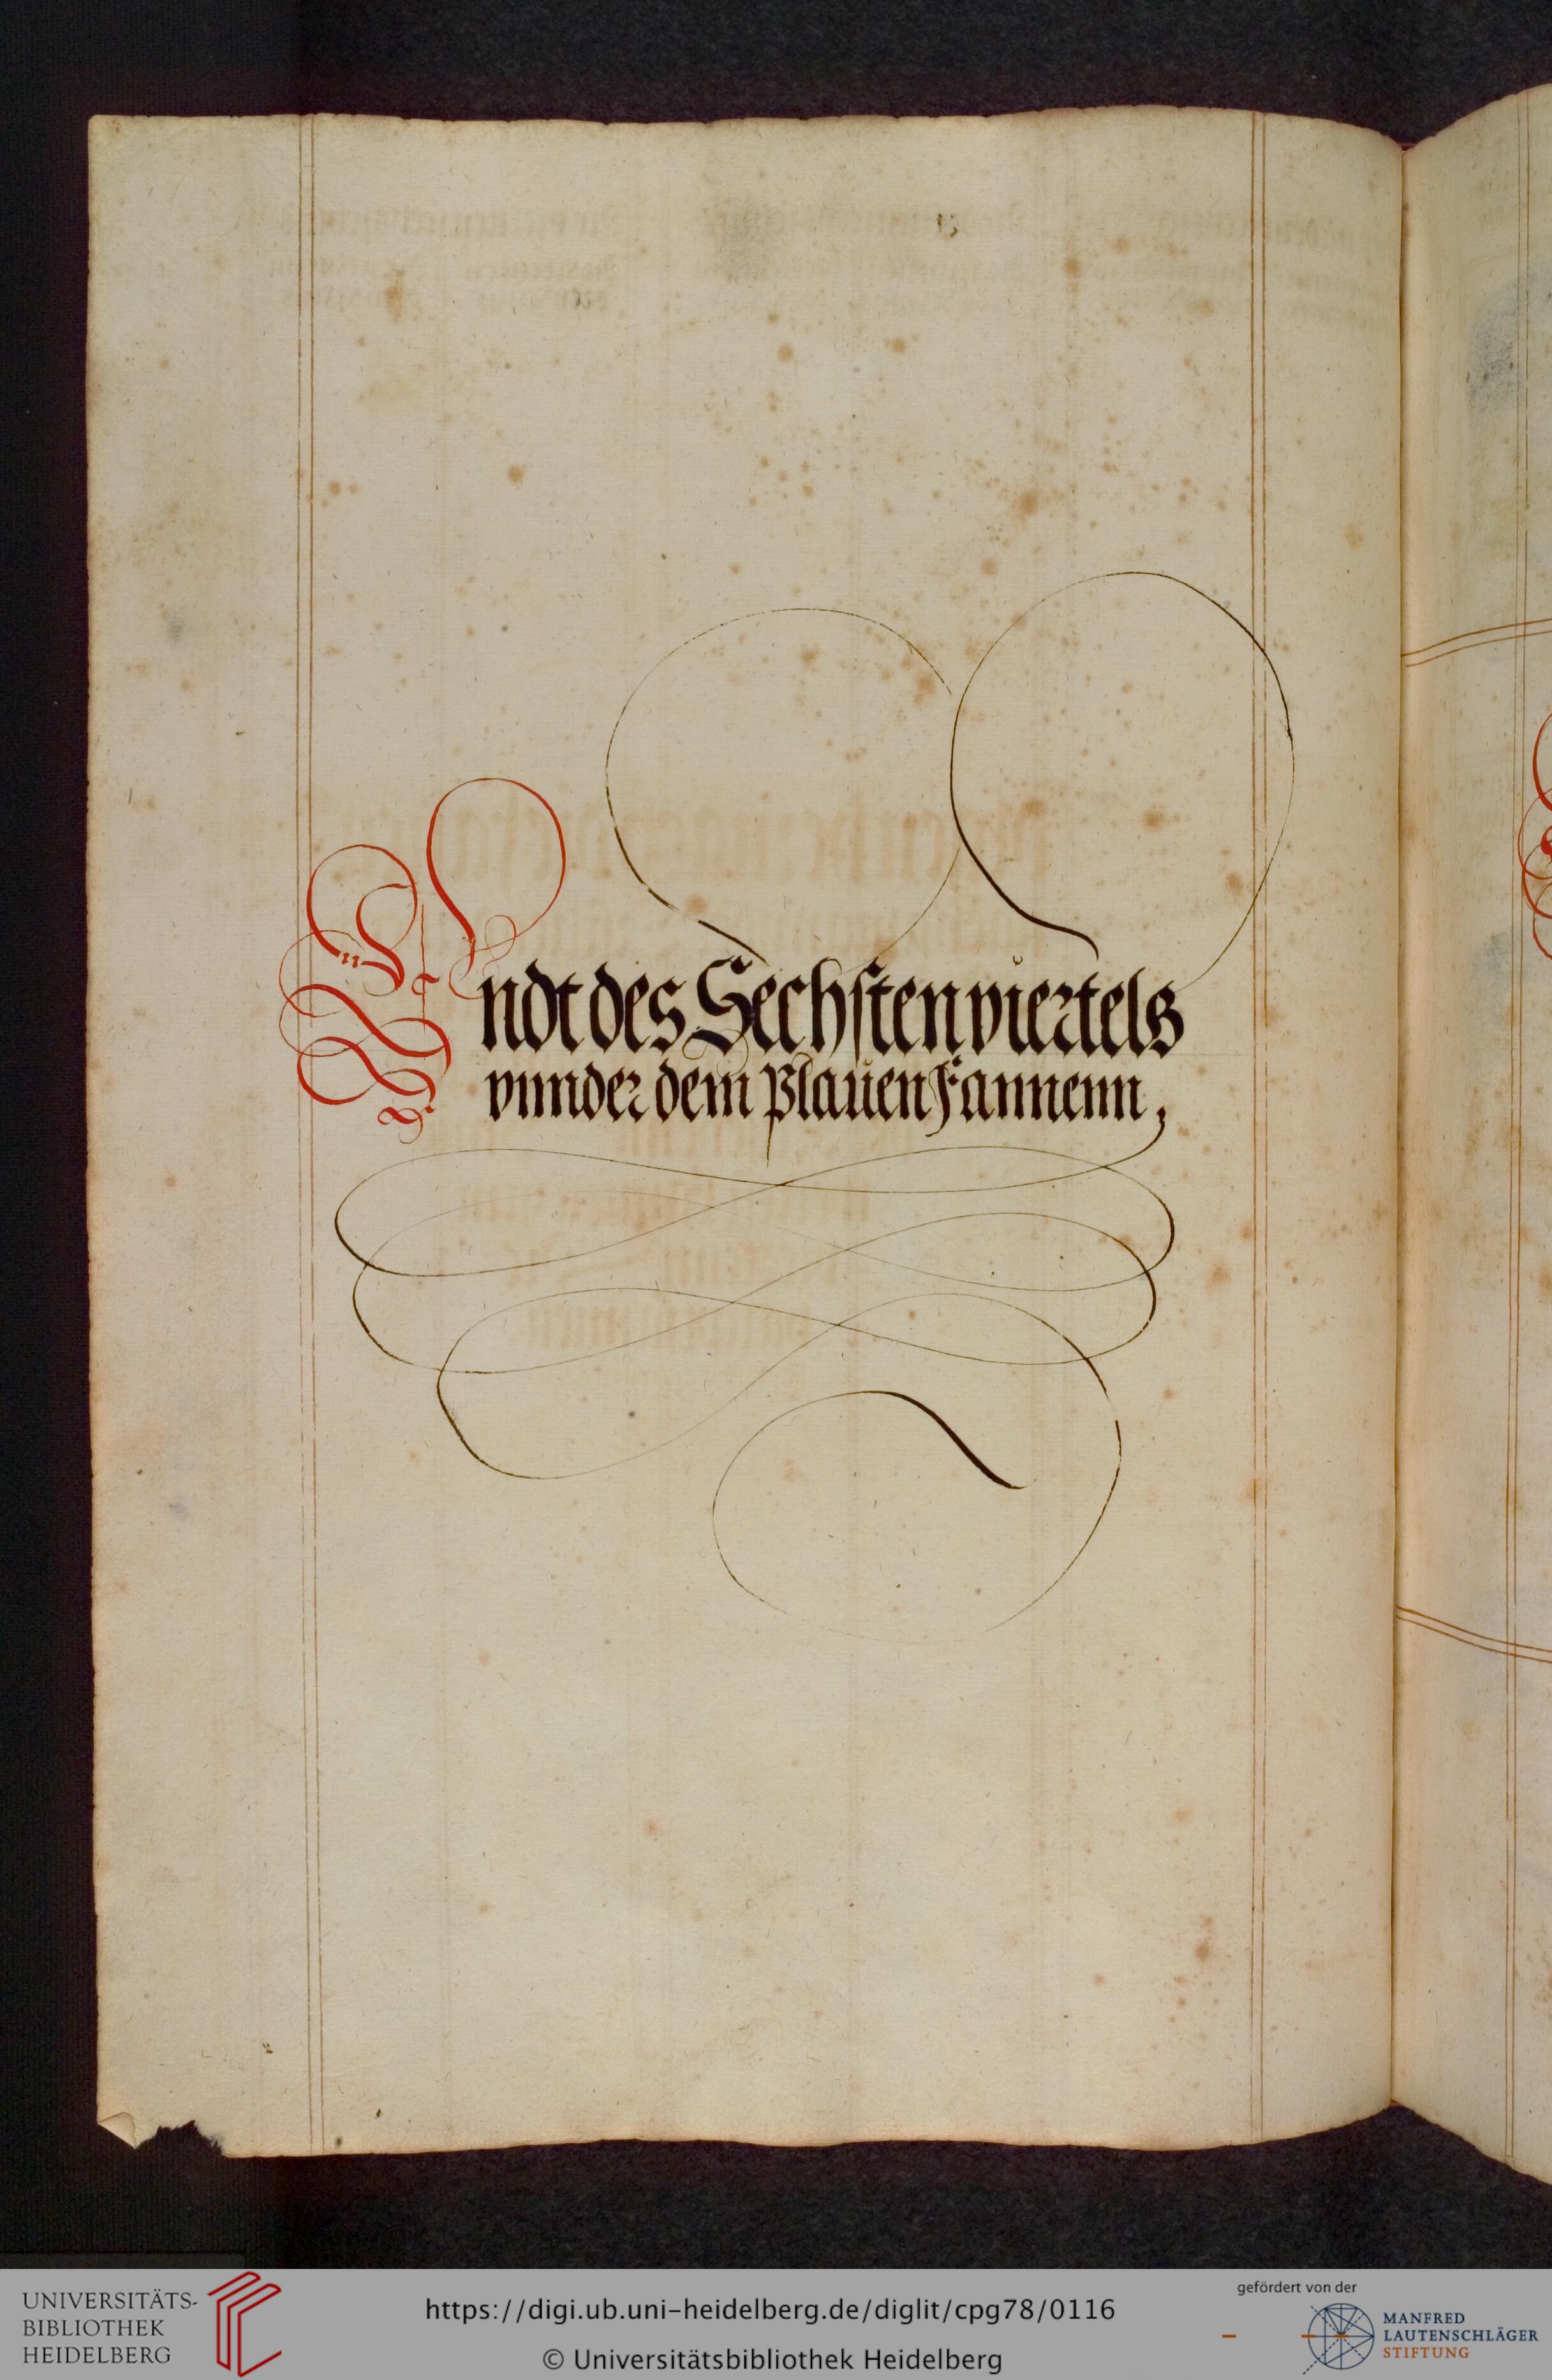 Endt des Sechsten viertels
vnnder dem Plauen Fannenn,
UNIVERSITÄTS-
BIBLIOTHEK
HEIDELBERG
https://digi.ub.uni-heidelberg.de/diglit/cpg78/0116
© Universitätsbibliothek Heidelberg
gefördert von der
MANFRED
LAUTENSCHLÄGER
STIFTUNG